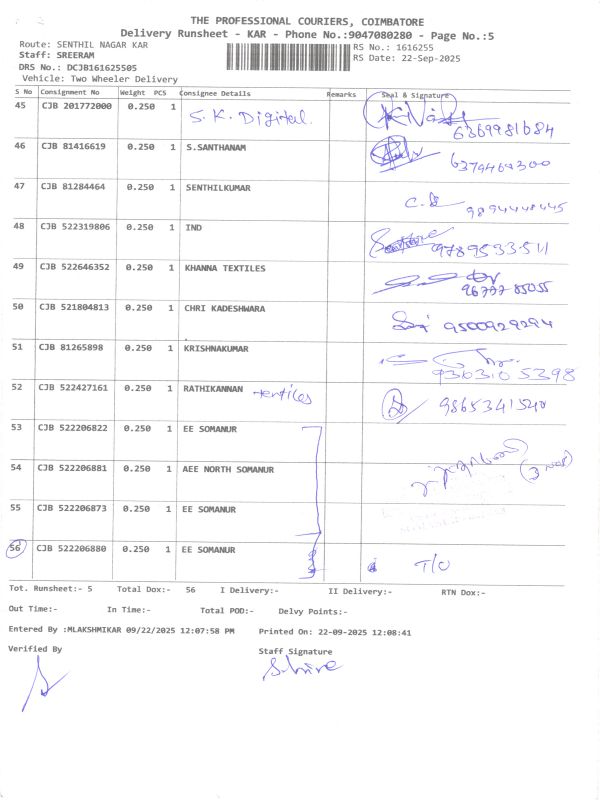 THE PROFESSIONAL COURIERS, COIMBATORE
Delivery Runsheet - KAR - Phone No.:9047080280 - Page No.:5
Route: SENTHIL NAGAR KAR RS No.: 1616255
Staff: SREERAM RS Date: 22-Sep-2025
DRS No.: DCJB161625505
Vehicle: Two Wheeler Delivery
S No Consignment No Weight PCS Consignee Details Remarks Seal & Signature
45 CJB 201772000 0.250 1 S. K. Digital. 6369981684
46 CJB 81416619 0.250 1 S.SANTHANAM 6379464300
47 CJB 81284464 0.250 1 SENTHILKUMAR 9894448445
48 CJB 522319806 0.250 1 IND 9789533511
49 CJB 522646352 0.250 1 KHANNA TEXTILES
50 CJB 521804813 0.250 1 CHRI KADESHWARA 9500929294
51 CJB 81265898 0.250 1 KRISHNAKUMAR 936310 5398
52 CJB 522427161 0.250 1 RATHIKANNAN textiles 9865341540
53 CJB 522206822 0.250 1 EE SOMANUR
54 CJB 522206881 0.250 1 AEE NORTH SOMANUR
55 CJB 522206873 0.250 1 EE SOMANUR
56 CJB 522206880 0.250 1 EE SOMANUR T/O
Tot. Runsheet:- 5 Total Dox:- 56 I Delivery:- II Delivery:- RTN Dox:-
Out Time:- In Time:- Total POD:- Delvy Points:-
Entered By :MLAKSHMIKAR 09/22/2025 12:07:58 PM Printed On: 22-09-2025 12:08:41
Verified By Staff Signature